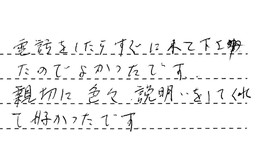 電話をしたらすぐに来て下さっ
たのでよかったです
親切に色々説明をしてくれ
て好かったです